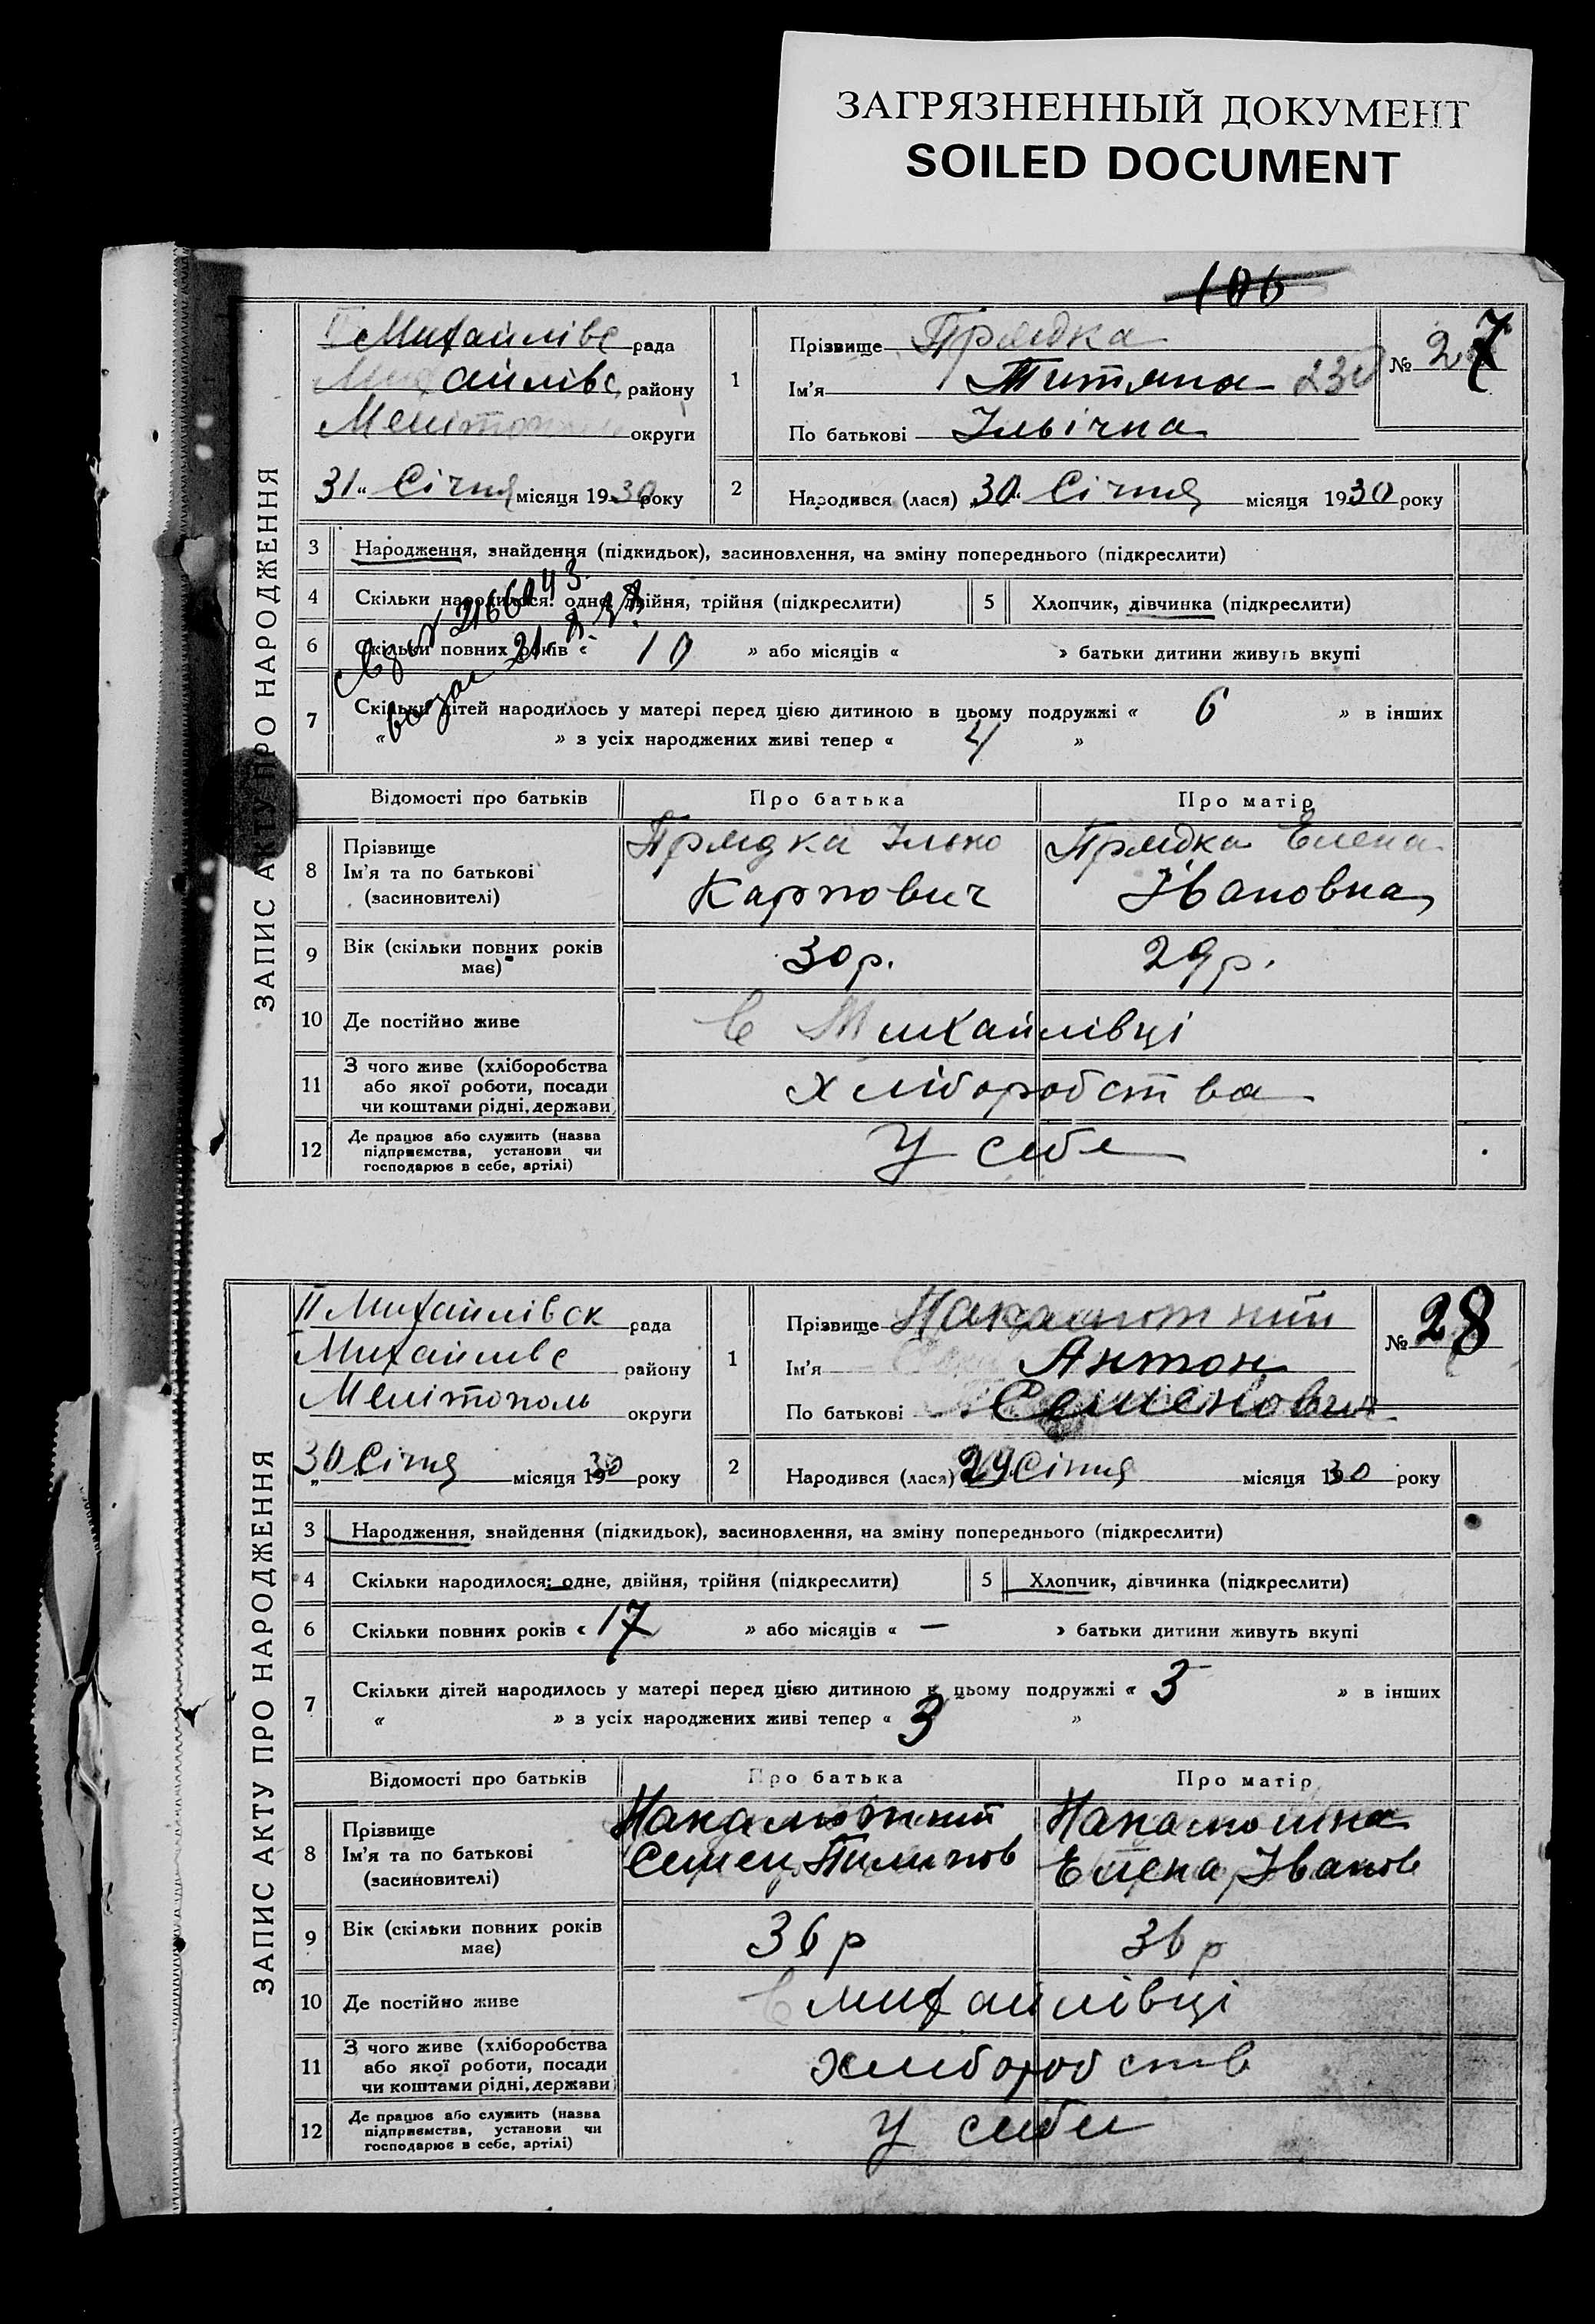 ЗАГРЯЗНЕННЫЙ ДОКУМЕНТ
SOILED DOCUMENT
106
ЗАПИС АКТУ ПРО НАРОДЖЕННЯ
II Михайлівс рада
Михайлівс району
Мелітополь округи
31 " Січня місяця 1930 року
1 Прізвище Прядка
Ім'я Титяна 230
По батькові Ільічна
№ 27
2 Народився (лася) 30 " Січня місяця 1930 року
3 Народження, знайдення (підкидьок), засиновлення, на зміну попереднього (підкреслити)
4 Скільки народилося: одне, двійня, трійня (підкреслити) 5 Хлопчик, дівчинка (підкреслити)
6 Скільки повних років « 10 » або місяців « » батьки дитини живуть вкупі
7 Скільки дітей народилось у матері перед цією дитиною в цьому подружжі « 6 » в інших
« » з усіх народжених живі тепер « 4 »
Відомості про батьків Про батька Про матір
8 Прізвище Ім'я та по батькові (засиновителі)
Прядка Ілько Карпович
Прядка Елена Івановна
9 Вік (скільки повних років має) 30 р. 29 р.
10 Де постійно живе в Михайлівці
11 З чого живе (хліборобства або якої роботи, посади чи коштами рідні, держави) хліборобства
12 Де працює або служить (назва підприємства, установи чи господарює в себе, артілі) У себе
ЗАПИС АКТУ ПРО НАРОДЖЕННЯ
II Михайлівск рада
Михайливс району
Мелітополь округи
„30 Січня місяця 1930 року
1 Прізвище
Ім'я Антон
По батькові Семенович
№ 28
2 Народився (лася) 29 Січня місяця 1930 року
3 Народження, знайдення (підкидьок), засиновлення, на зміну попереднього (підкреслити)
4 Скільки народилося: одне, двійня, трійня (підкреслити) 5 Хлопчик, дівчинка (підкреслити)
6 Скільки повних років « 17 » або місяців « — » батьки дитини живуть вкупі
7 Скільки дітей народилось у матері перед цією дитиною в цьому подружжі « 3 » в інших
« » з усіх народжених живі тепер « 3 »
Відомості про батьків Про батька Про матір
8 Прізвище Ім'я та по батькові (засиновителі)
Семен Пилипов
Елена Іванов
9 Вік (скільки повних років має) 36 р 36 р
10 Де постійно живе в михайлівці
11 З чого живе (хліборобства або якої роботи, посади чи коштами рідні, держави) хлиборобств
12 Де працює або служить (назва підприємства, установи чи господарює в себе, артілі) У себи